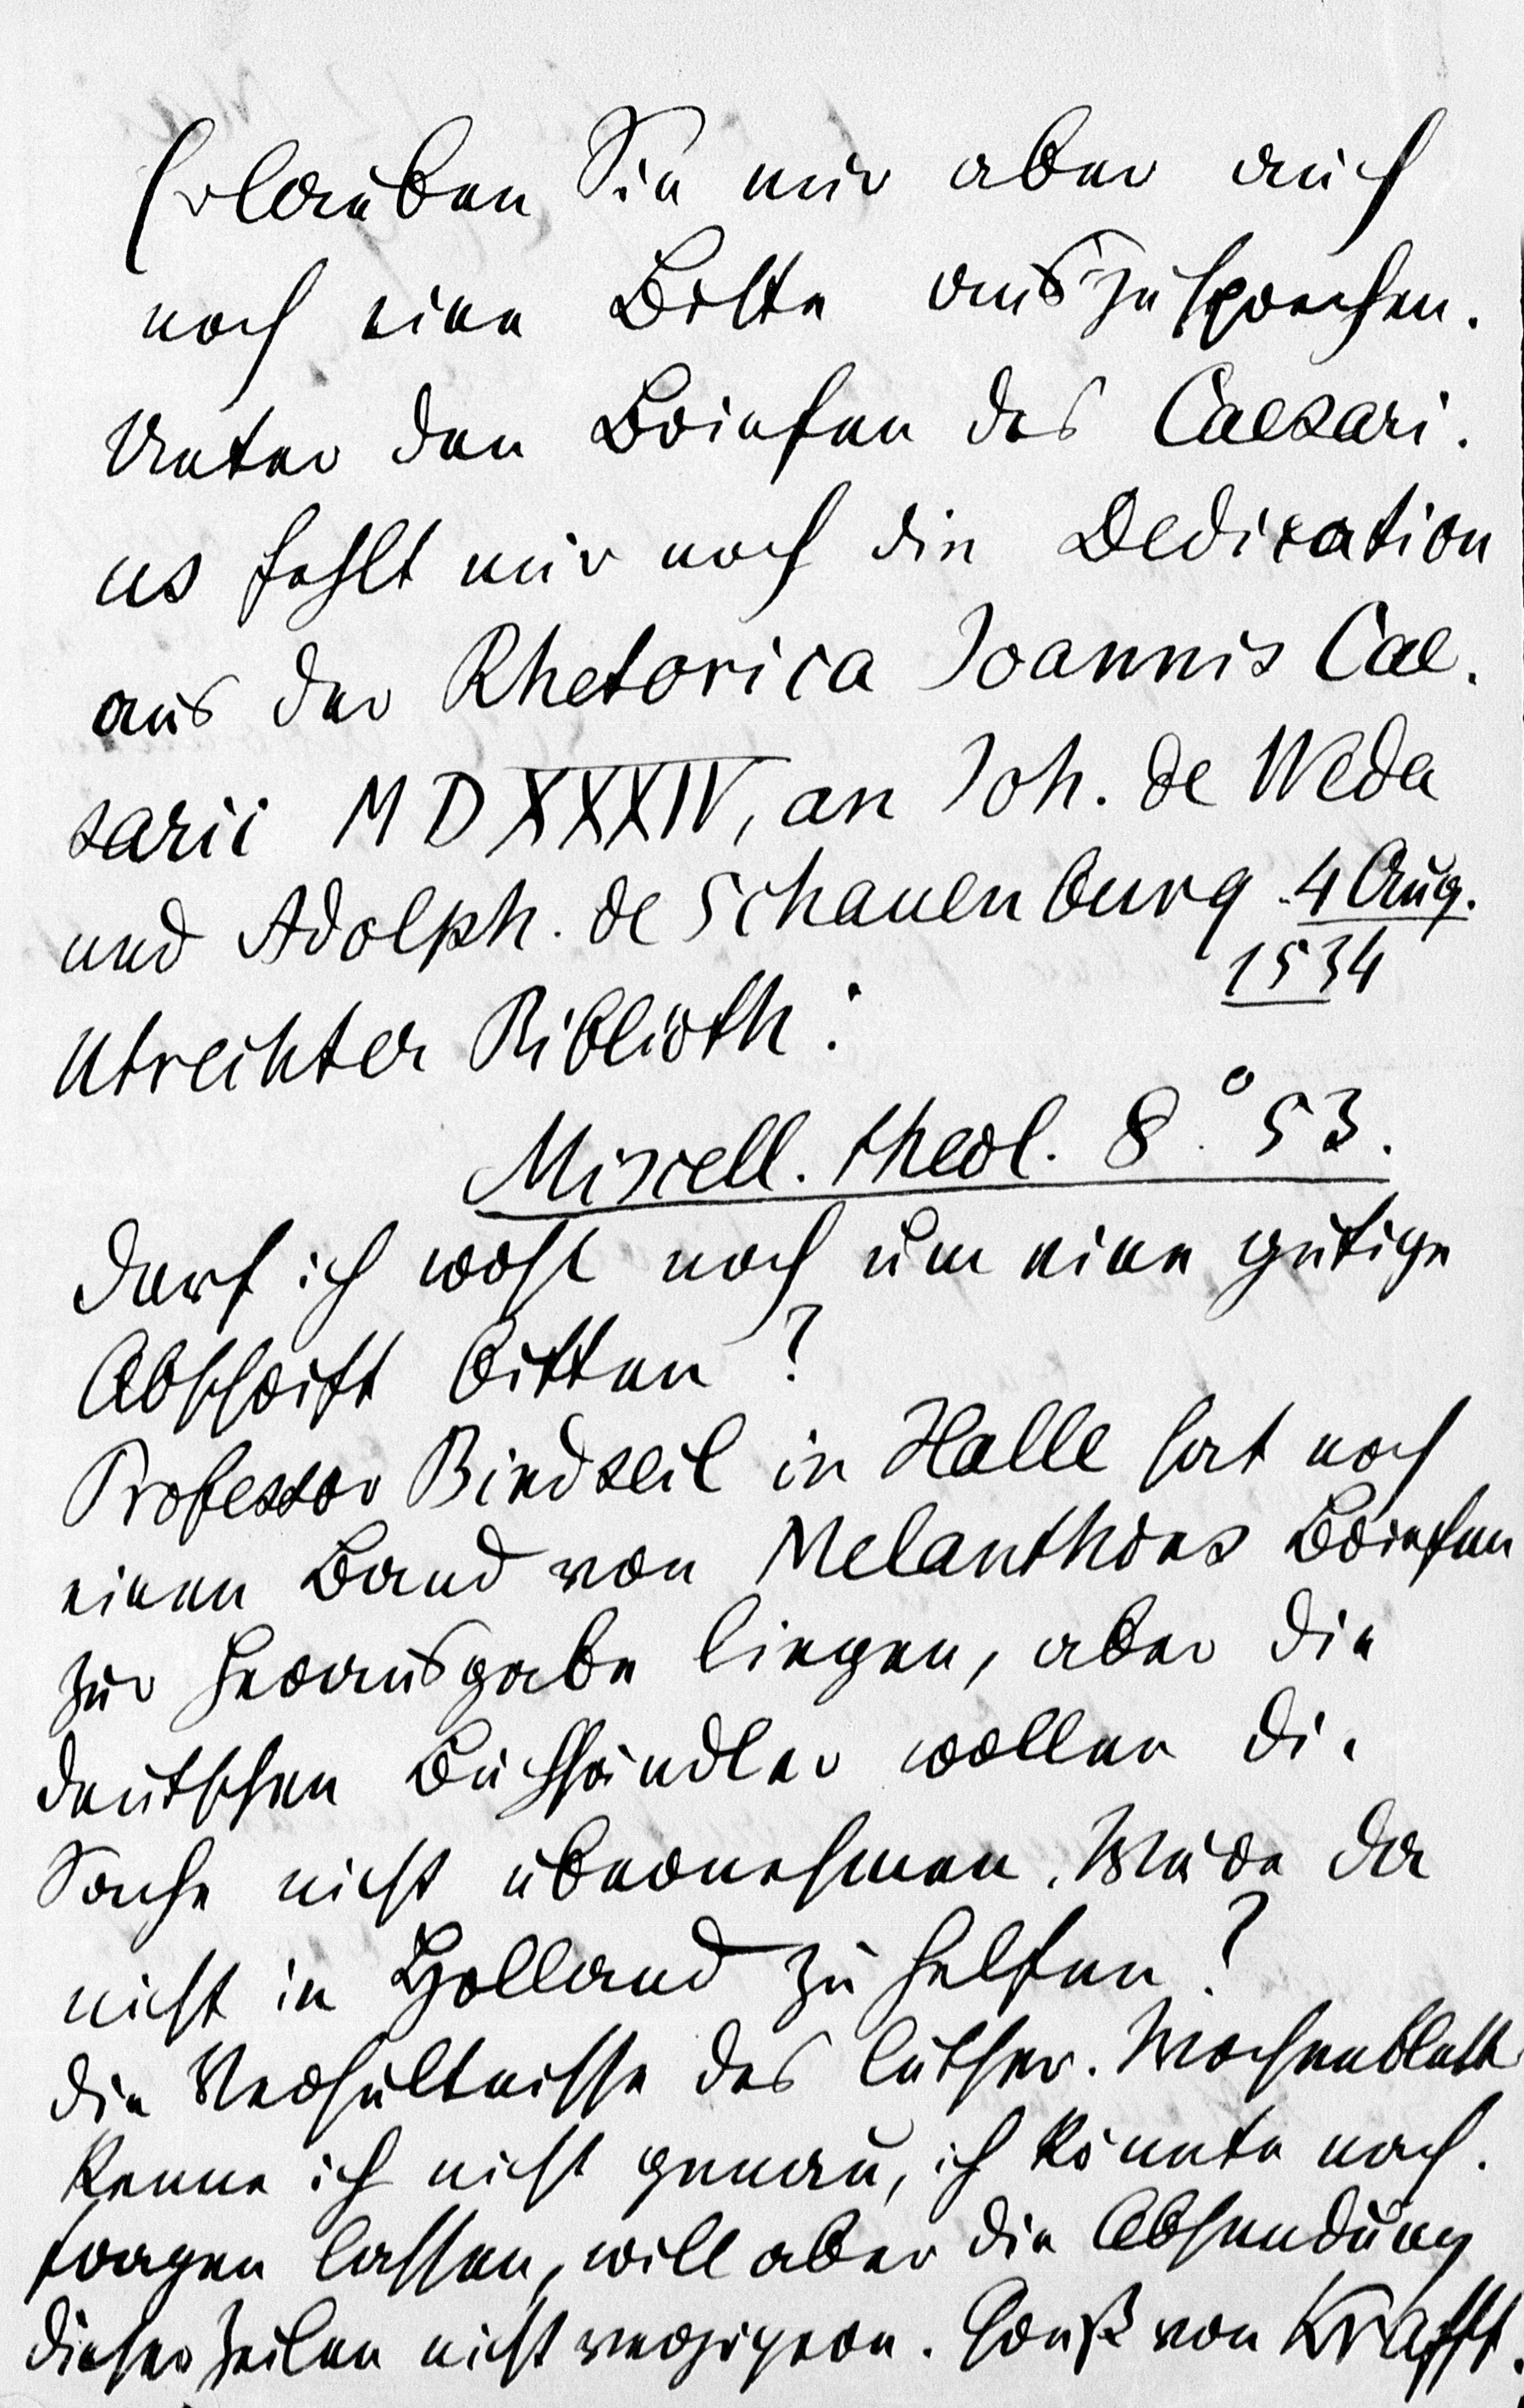 Erlauben Sie mir aber auch
noch eine Bitte auszusprechen.
Unter den Briefen des Caesari.
us fehlt mir noch die Dedication
aus der Rhetorica Joannis Cae.
sarii MDXXXIV, an Joh. de Weda
und Adolph. de Schauenburg 4 Aug.
1534
Utrechter Biblioth:
Miscell. theol. 8° 53.
Darf ich wohl noch um eine gütige
Abschrift bitten?
Professor Bindseil in Halle hat noch
einen Band von Melanthons Briefen
zur Herausgabe liegen, aber die
deutschen Buchhändler wollen die
Sache nicht übernehmen. Wäre da
nicht in Holland zu helfen?
Die Verhältnisse des luther. Wochenblatt
kenne ich nicht genau, ich könnte nach.
fragen lassen, will aber die Absendung
dieser Zeilen nicht verzögern. Gruß von Krafft.